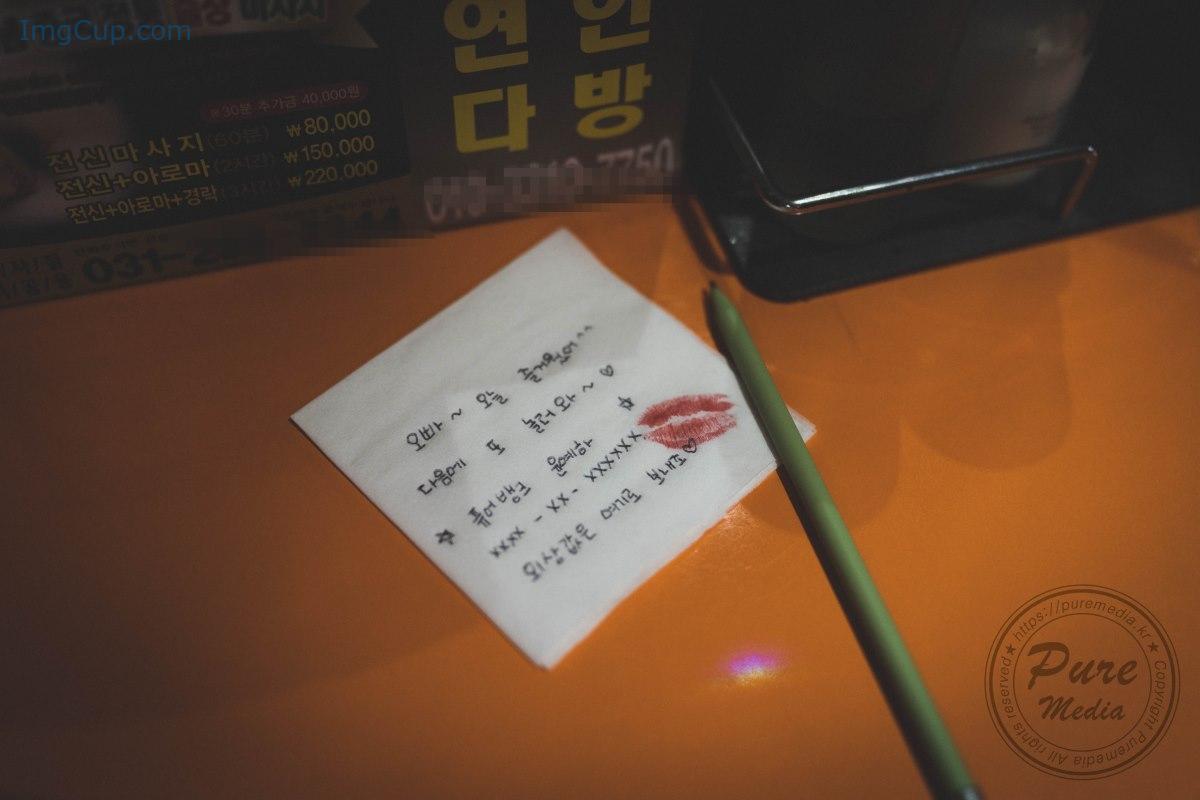 ImgCup.com
마사지
연 인
다 방
※30분 추가금 40,000원
전신마사지(60분) ₩80,000
전신+아로마(2시간) ₩150,000
전신+아로마+경락(3시간) ₩220,000
031-
7750
오빠~ 오늘 즐거웠어^^
다음에 또 놀러와~♡
☆ 퓨어뱅크 윤예하 ☆
xxxx - xx - xxxxxxxxx
오십만원
https://puremedia.kr
Pure
Media
Copyright Puremedia All rights reserved